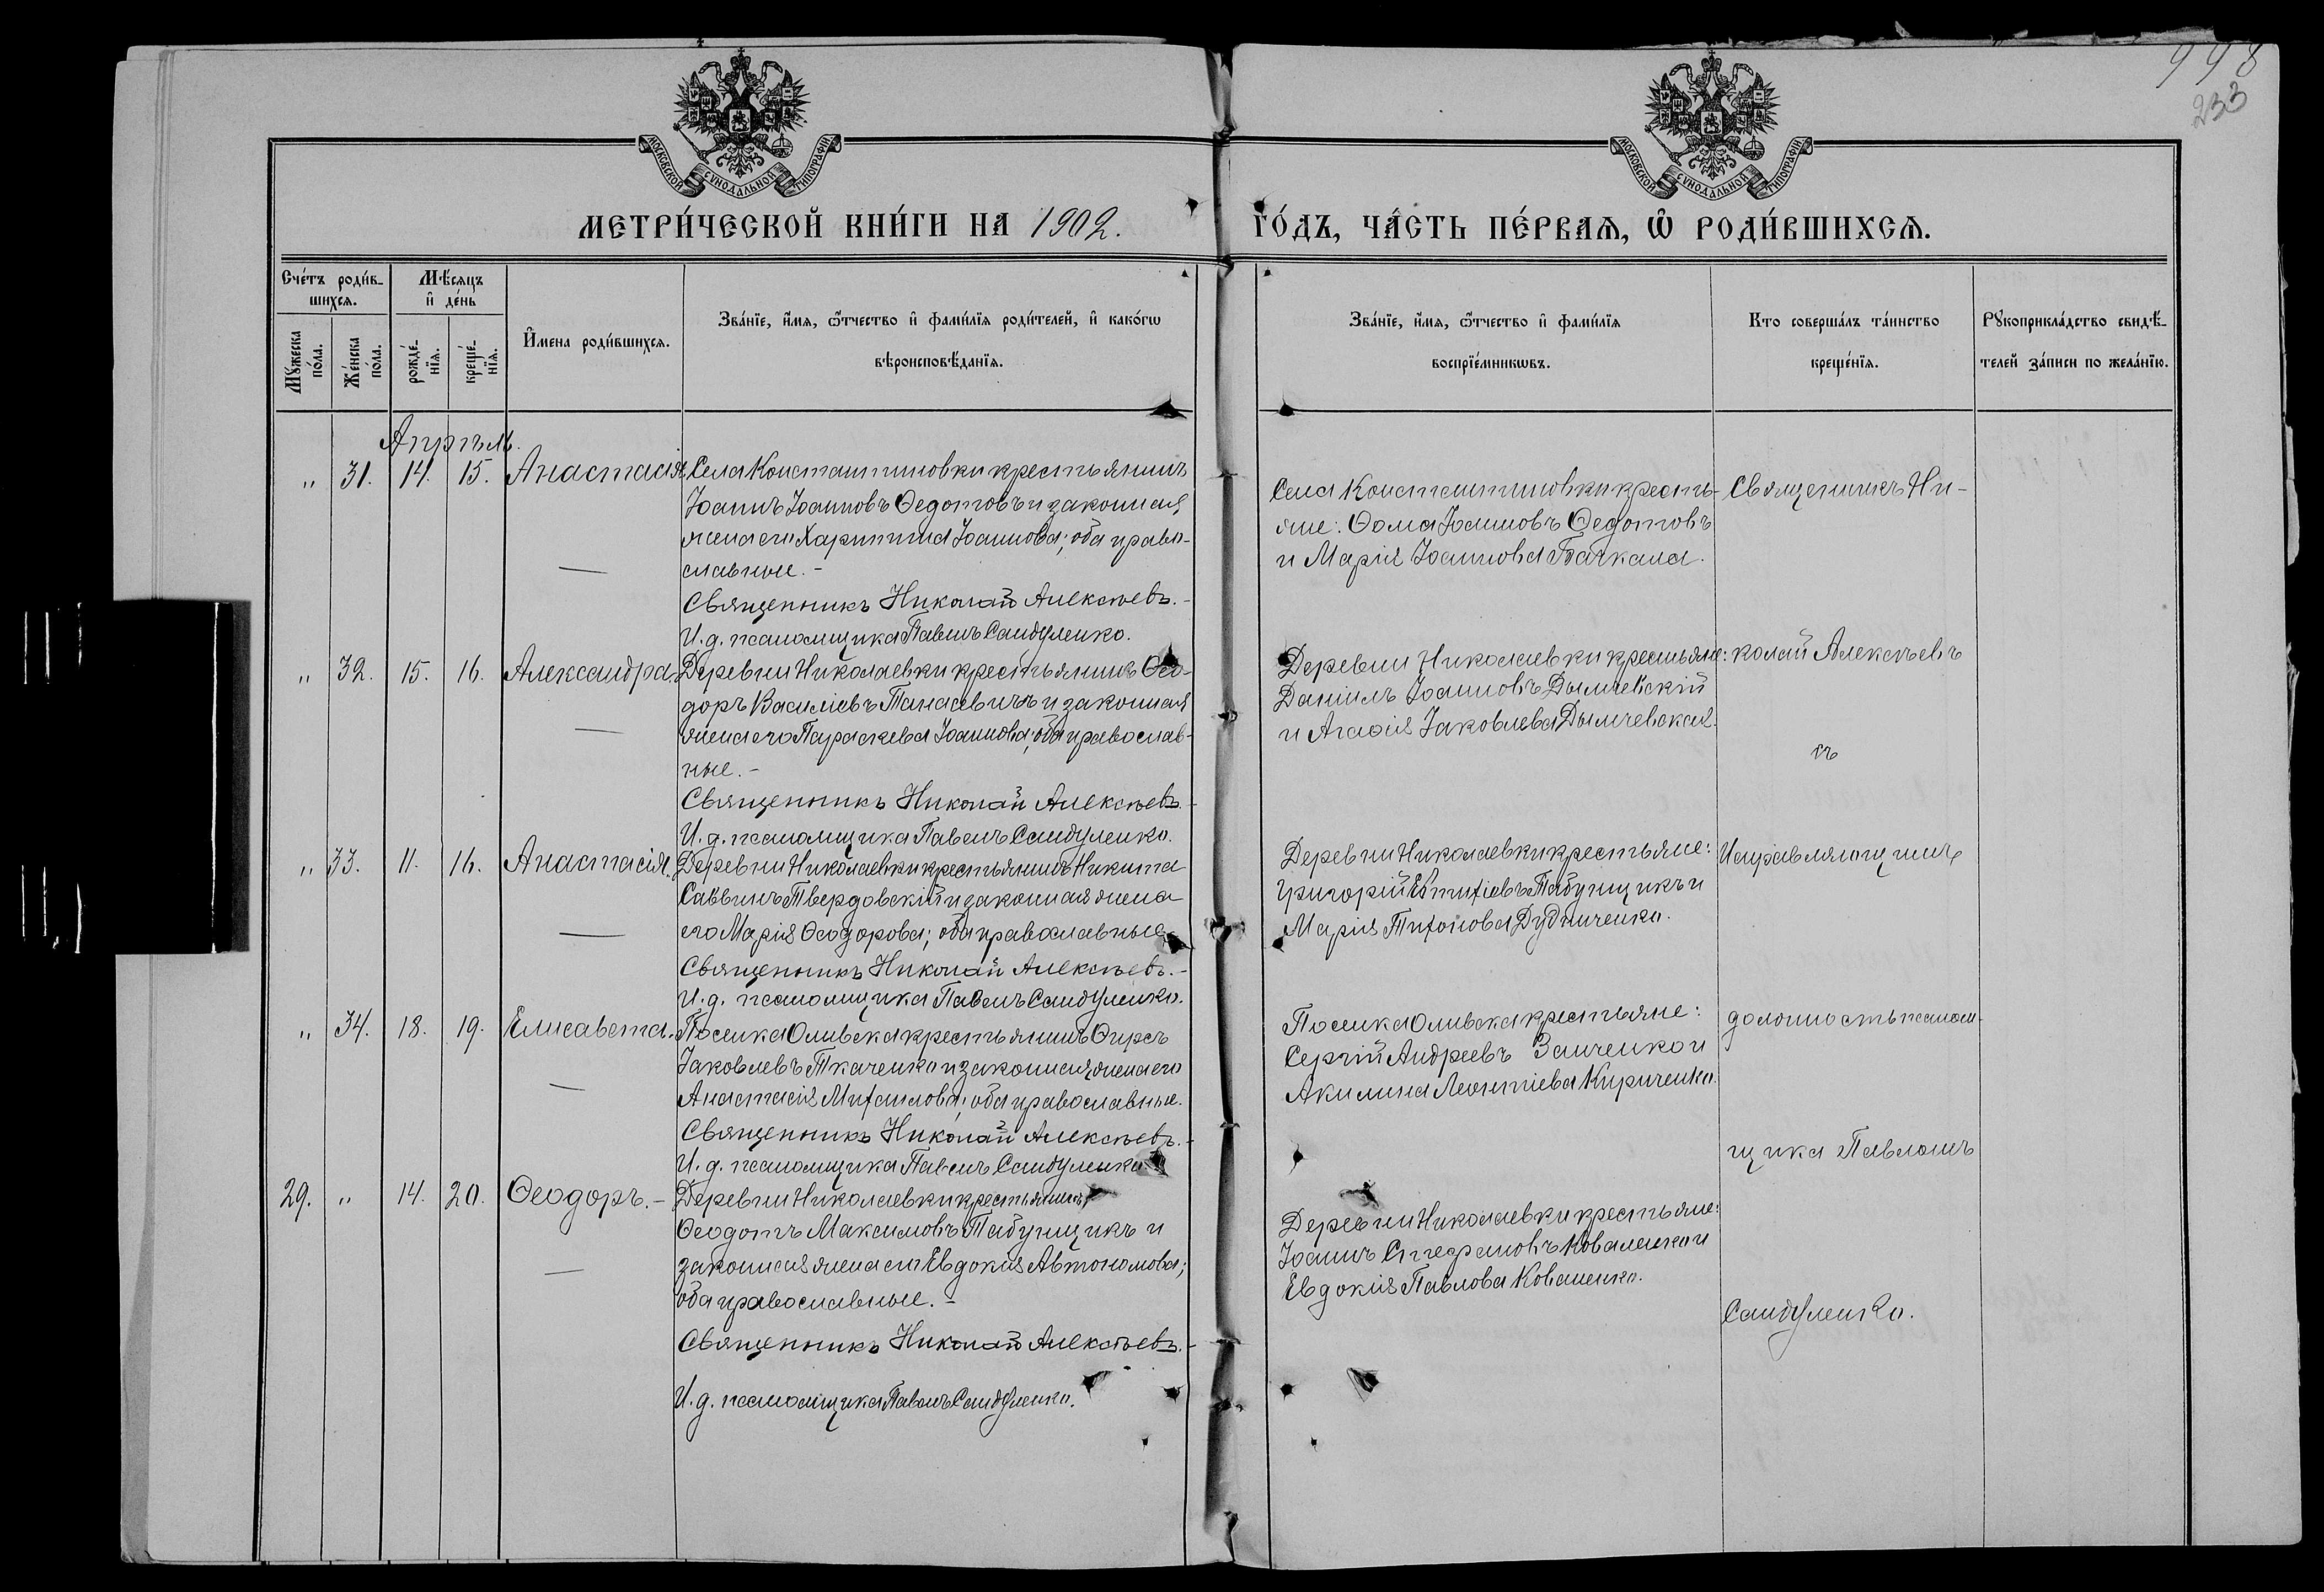 998
233
МОСКОВСКОЙ СѴНОДАЛЬНОЙ ТИПОГРАФІИ
МОСКОВСКОЙ СѴНОДАЛЬНОЙ ТИПОГРАФІИ
МЕТРИ́ЧЕСКОЙ КНИ́ГИ НА 1902. ГО́ДЪ, ЧА́СТЬ ПЕ́РВАѦ, Ѽ РОДИ́ВШИХСѦ.
Сче́тъ роди́в-
шихсѧ.
Мꙋ́жеска по́ла.
Же́нска по́ла.
Мѣ́сѧцъ
и҆ де́нь
рожде́-
нїѧ.
креще́-
нїѧ.
И҆́мена роди́вшихсѧ.
Зва́нїе, и҆́мѧ, ѻ҆́тчество и҆ фами́лїѧ роди́телей, и҆ како́гѡ
вѣроисповѣ́данїѧ.
Зва́нїе, и҆́мѧ, ѻ҆́тчество и҆ фами́лїѧ
воспрїе́мникѡвъ.
Кто соверша́лъ та́инство
креще́нїѧ.
Рꙋкоприкла́дство свидѣ́-
телей за́писи по жела́нїю.
Апрѣль.
„ 31. 14. 15. Анастасія
Села Константиновки крестьянинъ
Іоаннъ Іоанновъ Ѳедотовъ и законная
жена его Харитина Іоаннова; оба право-
славные.-
Священникъ Николай Алексѣевъ.-
И. д. псаломщика Павелъ Сандуленко.
Села Константиновки кресть-
яне: Ѳома Іоанновъ Ѳедотовъ
и Марія Іоаннова Бачкала.
Священникъ Ни-
„ 32. 15. 16. Александра.
Деревни Николаевки крестьянинъ Ѳео-
доръ Василіевъ Танасевичъ и законная
жена его Параскева Іоаннова; оба православ-
ные.-
Священникъ Николай Алексѣевъ.-
И. д. псаломщика Павелъ Сандуленко.
Деревни Николаевки крестьяне:
Даніилъ Іоанновъ Дымчевскій
и Агаѳія Іаковлева Дымчевская.
колай Алексѣевъ
съ
„ 33. 11. 16. Анастасія.
Деревни Николаевки крестьянинъ Никита
Саввинъ Твердовскій и законная жена
его Марія Ѳеодорова; оба православные.
Священникъ Николай Алексѣевъ.-
И. д. псаломщика Павелъ Сандуленко.
Деревни Николаевки крестьяне:
Григорій Евтихіевъ Табунщикъ и
Марія Тихонова Дудниченко.
Исправляющимъ
„ 34. 18. 19. Елисавета.
Поселка Оливска крестьянинъ Ѳирсъ
Іаковлевъ Ткаченко и законная жена его
Анастасія Михаилова; оба православные.
Священникъ Николай Алексѣевъ.-
И. д. псаломщика Павелъ Сандуленко
Поселка Оливска крестьяне:
Сергій Андреевъ Заиченко и
Акилина Леонтіева Кириченко.
должность псалом-
щика Павломъ
29. „ 14. 20. Ѳеодоръ.-
Деревни Николаевки крестьянинъ
Ѳеодотъ Максимовъ Табунщикъ и
законная жена его Евдокія Автономова;
оба православные.-
Священникъ Николай Алексѣевъ.-
И. д. псаломщика Павелъ Сандуленко.
Деревни Николаевки крестьяне:
Іоаннъ Стефановъ Коваленко и
Евдокія Павлова Коваленко.
Сандуленко.